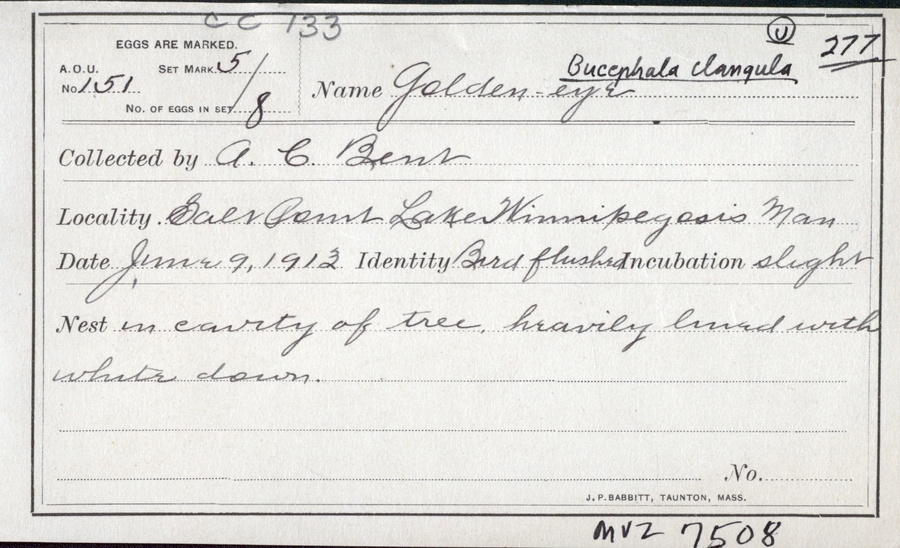 CC 133
EGGS ARE MARKED.
A.O.U. No. 151 SET MARK. 5/
No. OF EGGS IN SET 8
Name Golden-eye
Bucephala clangula
U
277
Collected by A. C. Bent
Locality. Salt Point Lake Winnipegosis Man
Date June 9, 1913 Identity Bird flushed Incubation slight
Nest in cavity of tree, heavily lined with
white down.
No.
J.P. BABBITT, TAUNTON, MASS.
MVZ 7508